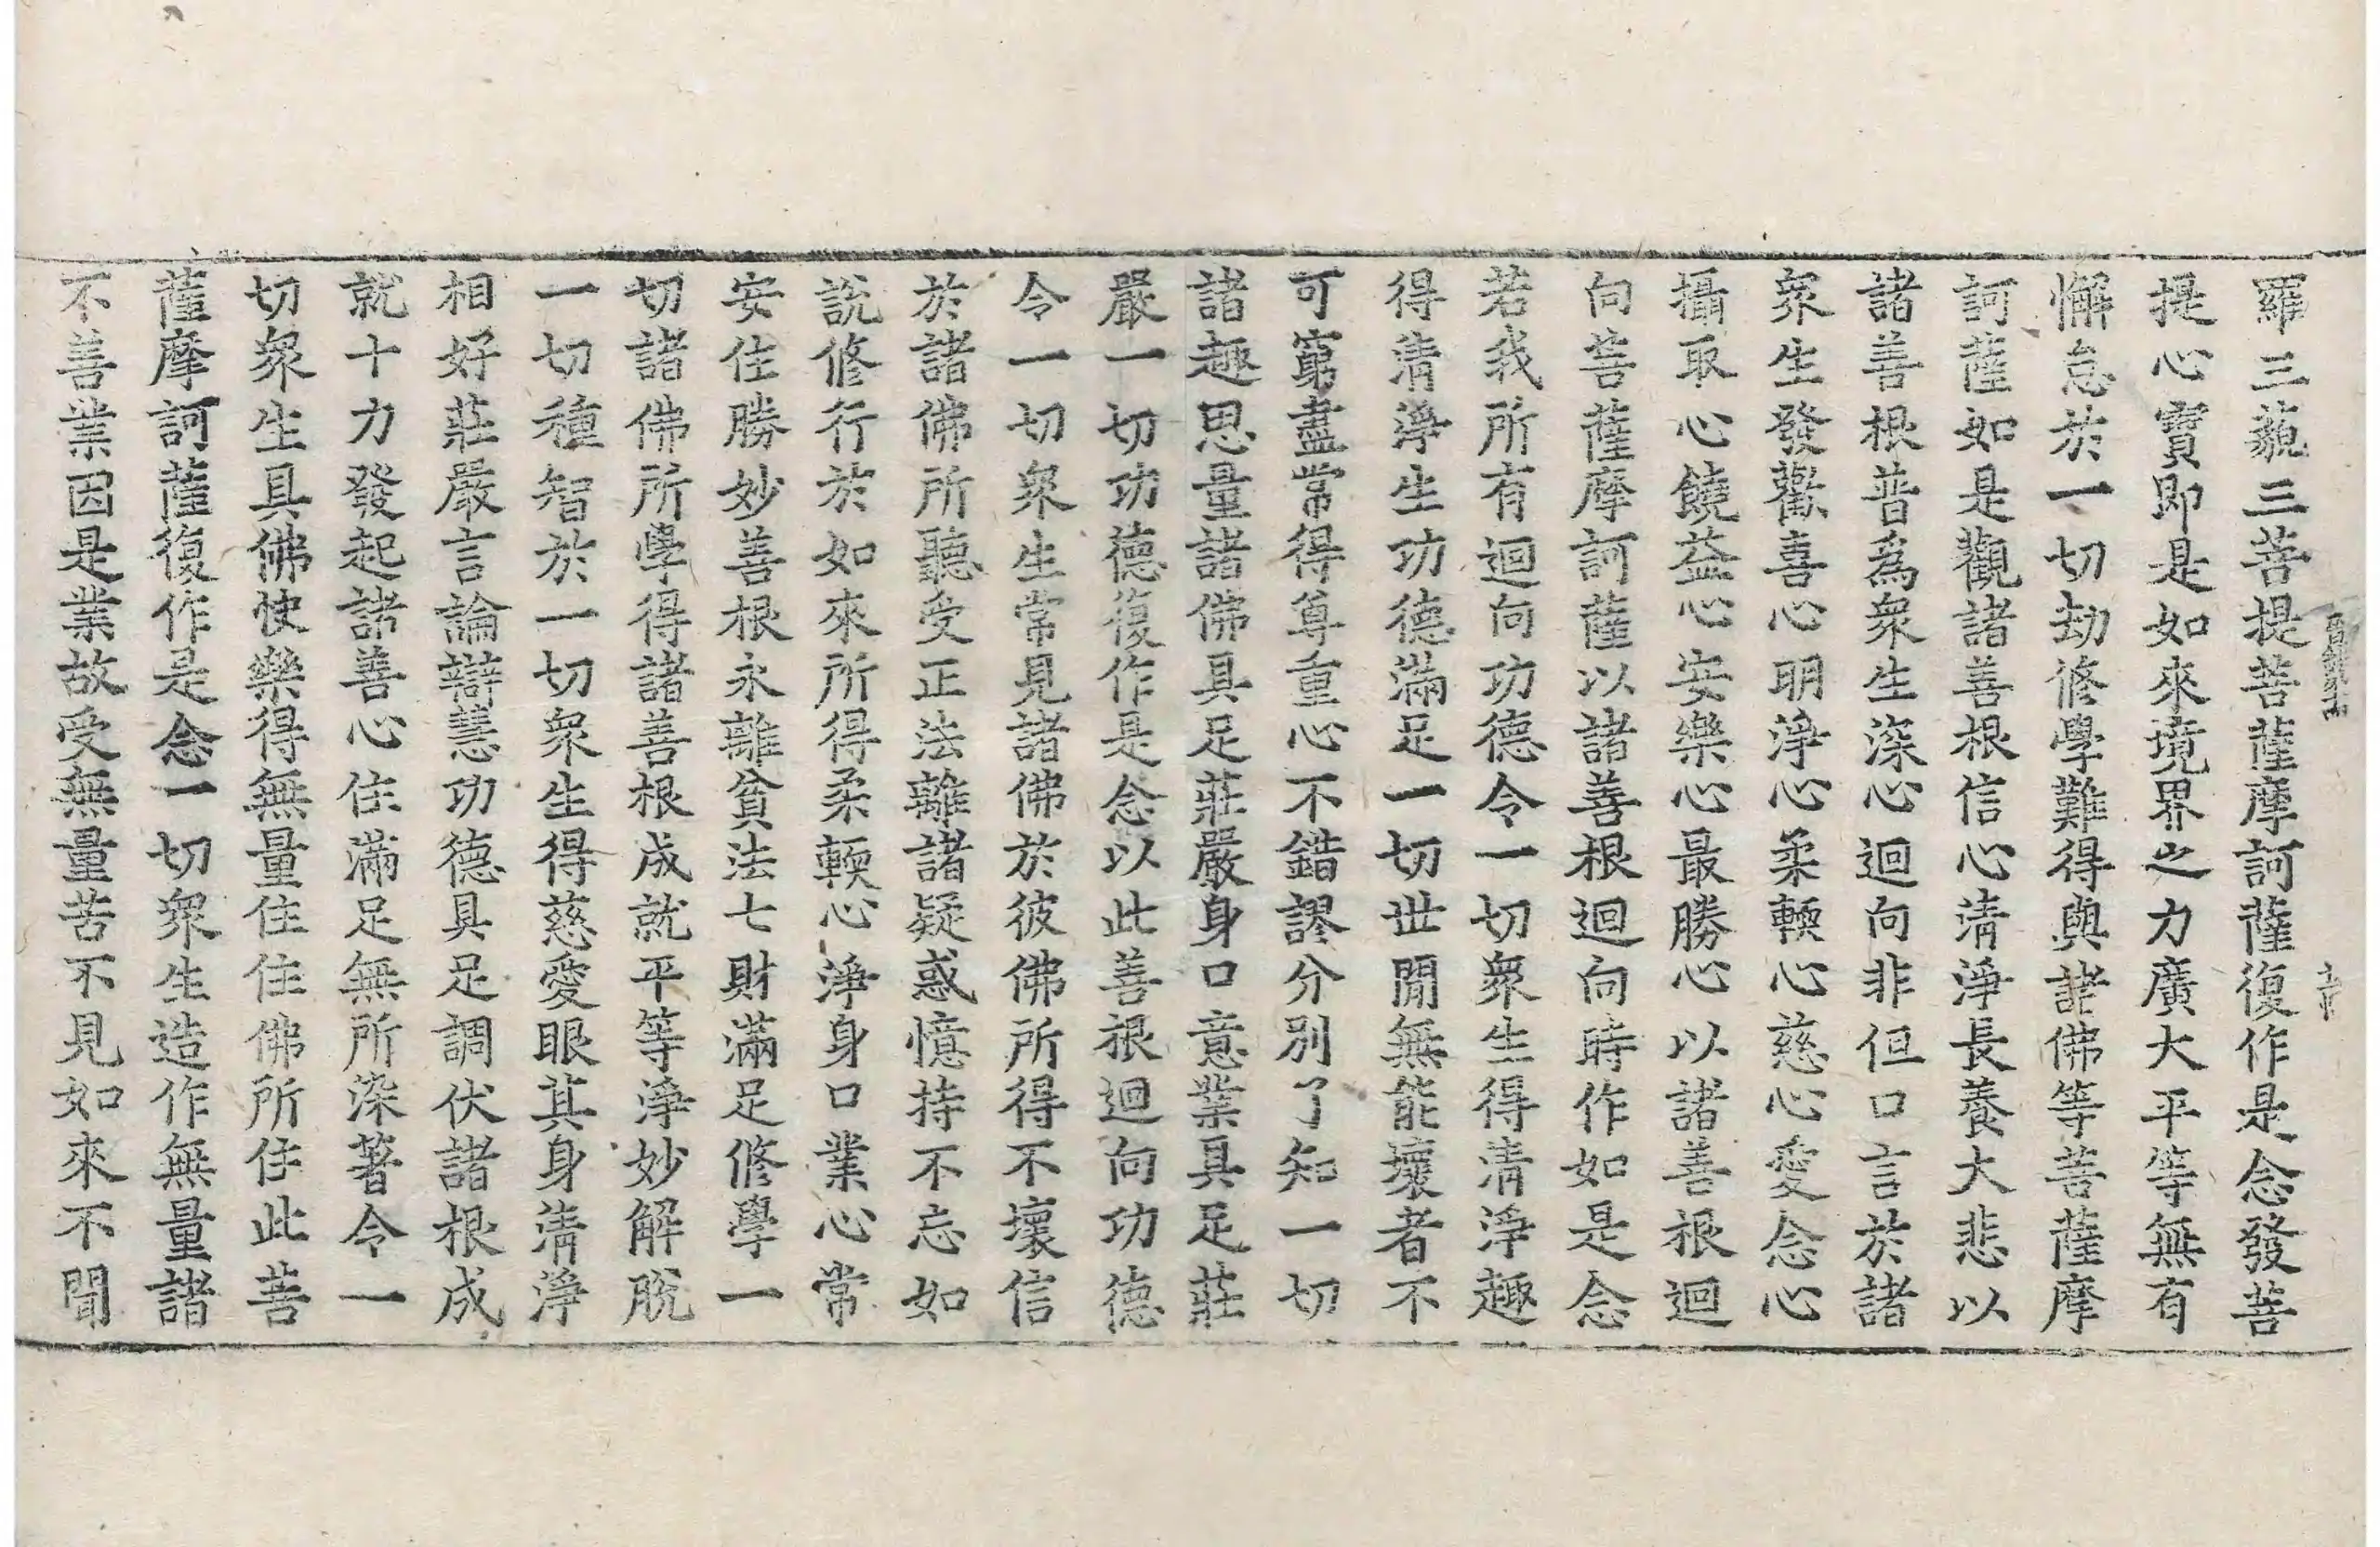 羅三藐三菩提菩薩摩訶薩復作是念發菩
提心寶即是如來境界之力廣大平等無有
懈怠於一切劫修學難得與諸佛等菩薩摩
訶薩如是觀諸善根信心清淨長養大悲以
諸善根普爲衆生深心迴向非但口言於諸
衆生發歡喜心明淨心柔輭心慈心愛念心
攝取心饒益心安樂心最勝心以諸善根迴
向菩薩摩訶薩以諸善根迴向時作如是念
若我所有迴向功德令一切衆生得清淨趣
得清淨生功德滿足一切世間無能壞者不
可窮盡常得尊重心不錯謬分別了知一切
諸趣思量諸佛具足莊嚴身口意業具足莊
嚴一切功德復作是念以此善根迴向功德
令一切衆生常見諸佛於彼佛所得不壞信
於諸佛所聽受正法離諸疑惑憶持不忘如
說修行於如來所得柔輭心淨身口業心常
安住勝妙善根永離貧法七財滿足修學一
切諸佛所學得諸善根成就平等淨妙解脫
一切種智於一切衆生得慈愛眼其身清淨
相好莊嚴言論辯慧功德具足調伏諸根成
就十力發起諸善心住滿足無所染著令一
切衆生具佛快樂得無量住住佛所住此菩
薩摩訶薩復作是念一切衆生造作無量諸
不善業因是業故受無量苦不見如來不聞